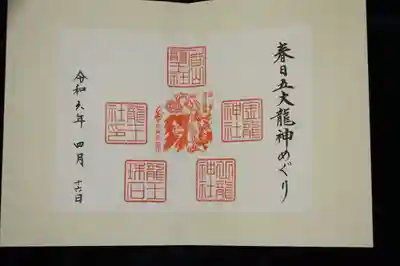 春日五大龍神めぐり
金龍
神社
龍王
社印
龍王
珠石
令和六年 四月 十六日